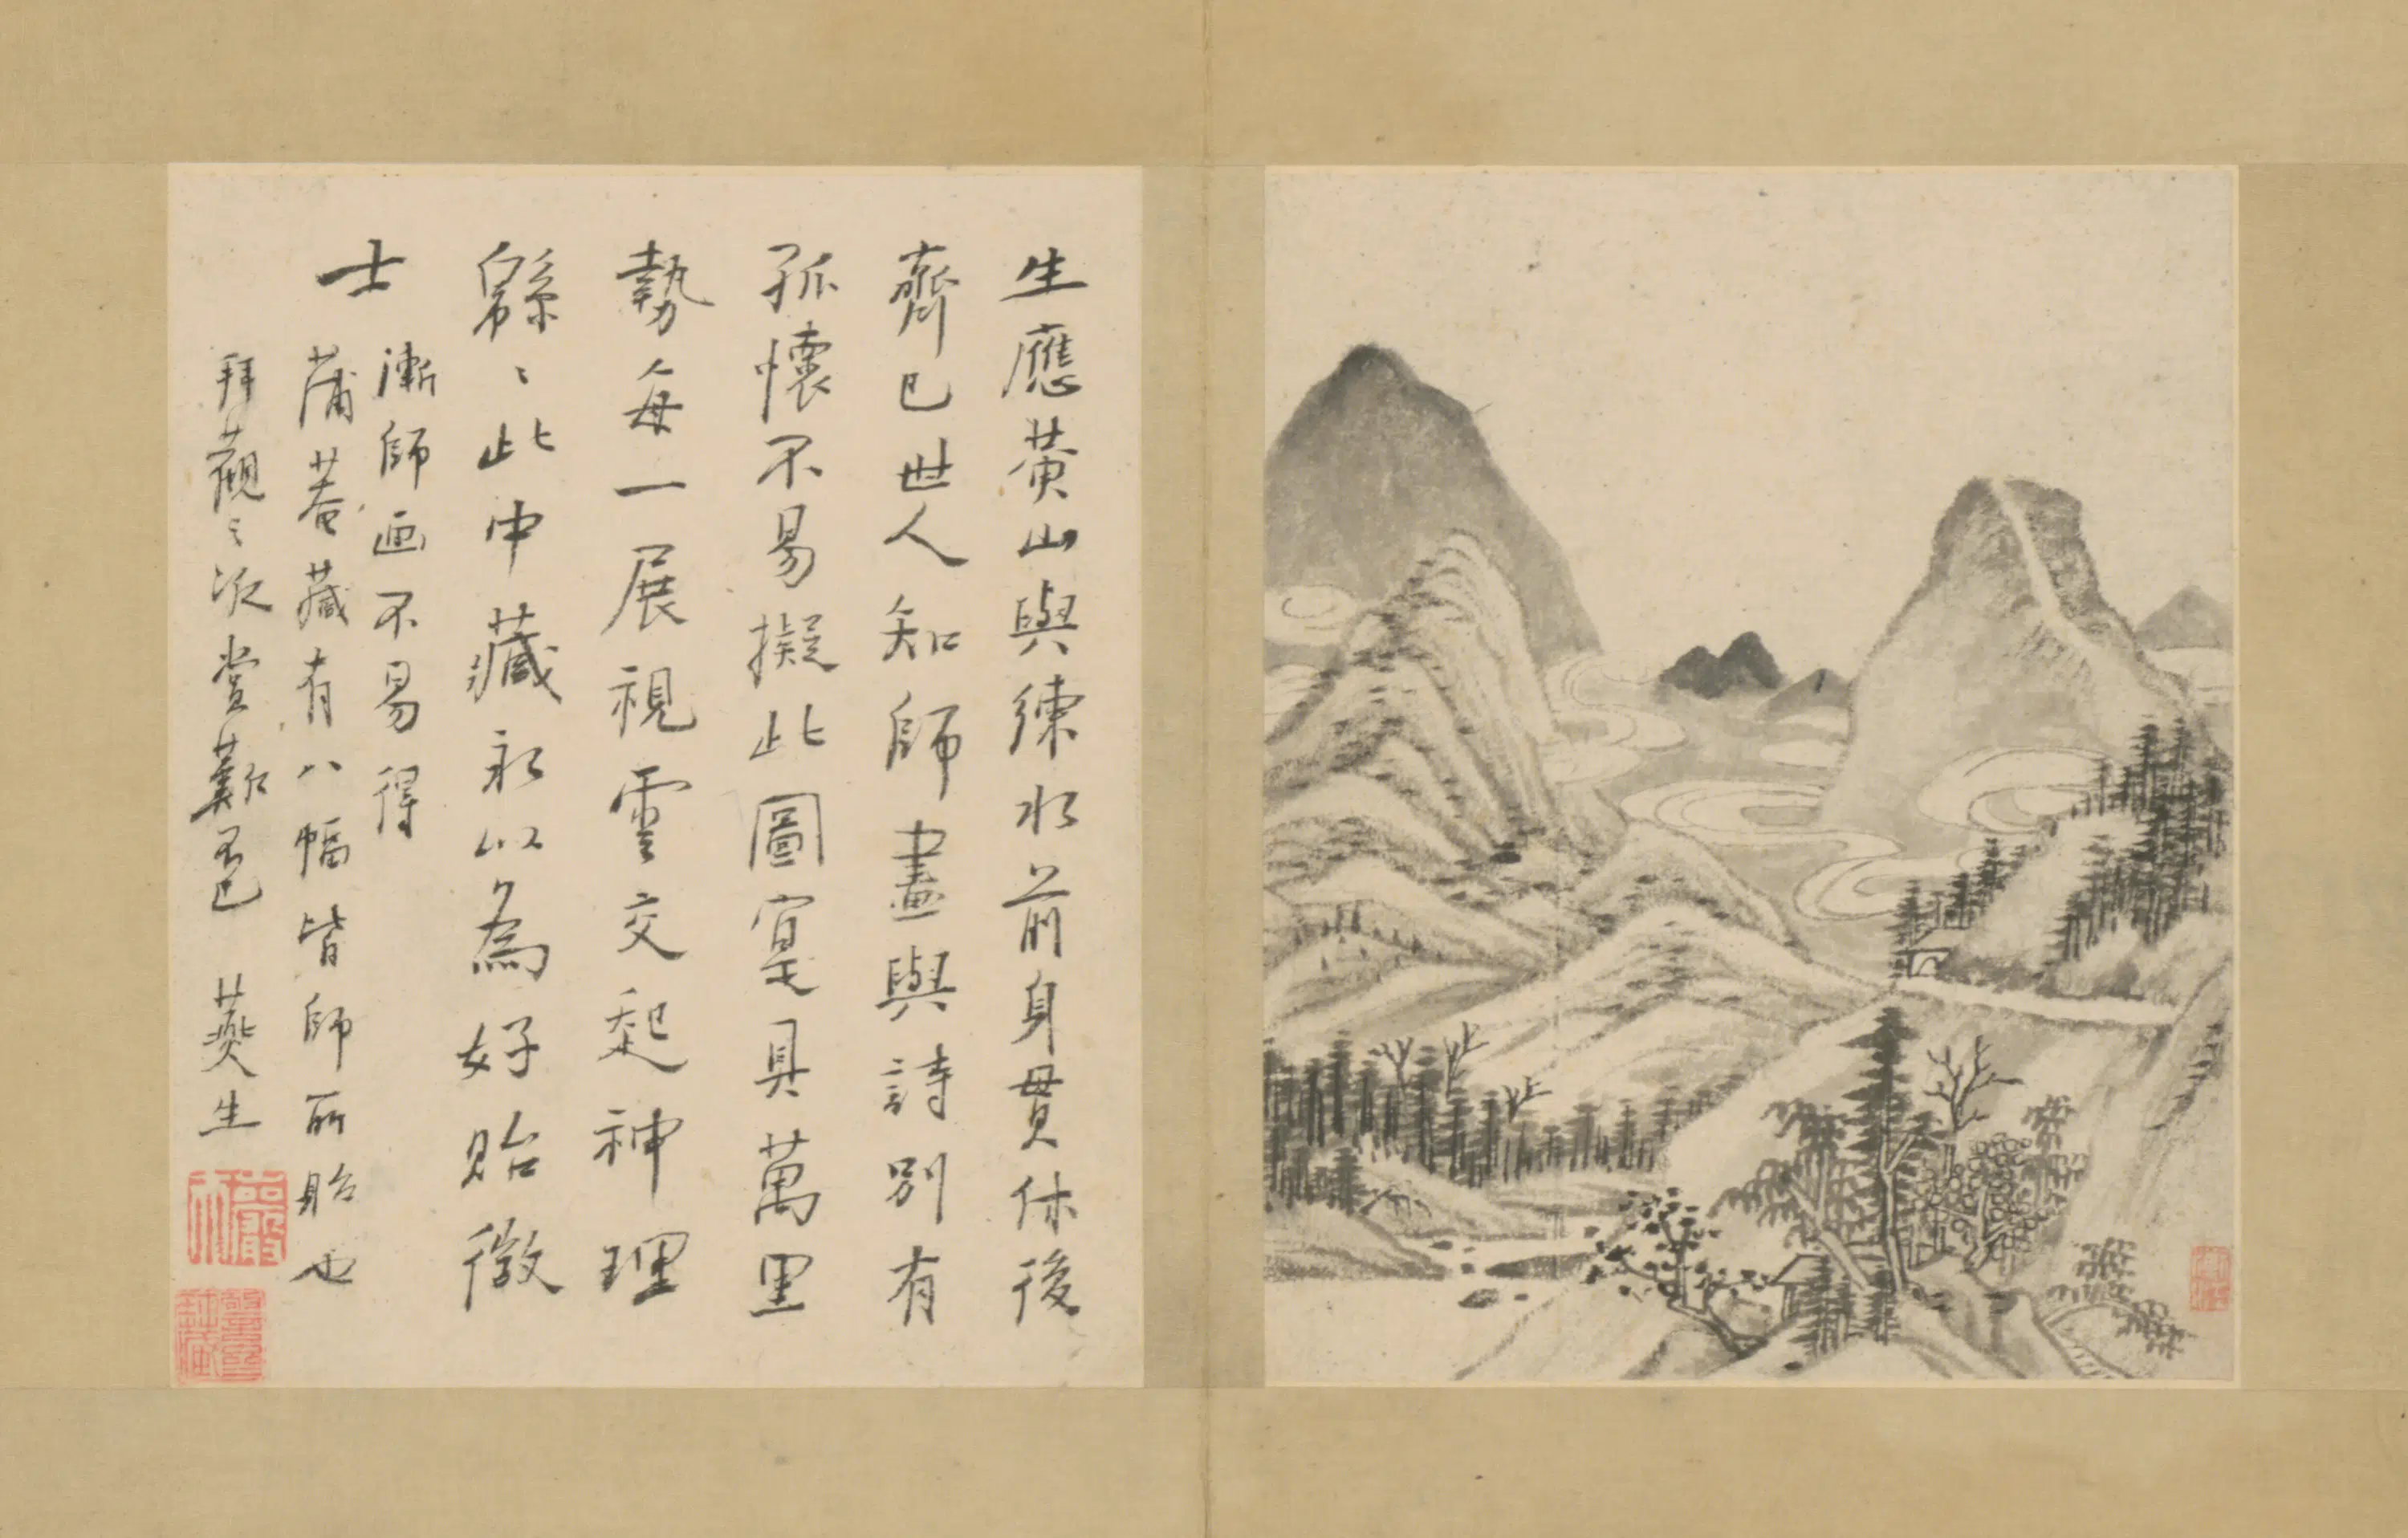 生應黄山與練水前身貫休後
齊已世人知師畫與詩別有
孤懷不易擬此圖寔具萬里
勢每一展視雲交起神理
緜〻此中藏永以為好貽徵
士
漸師画不易得
蒲菴藏有八幅皆師所貽也
拜觀之次賞歎不已 燕生